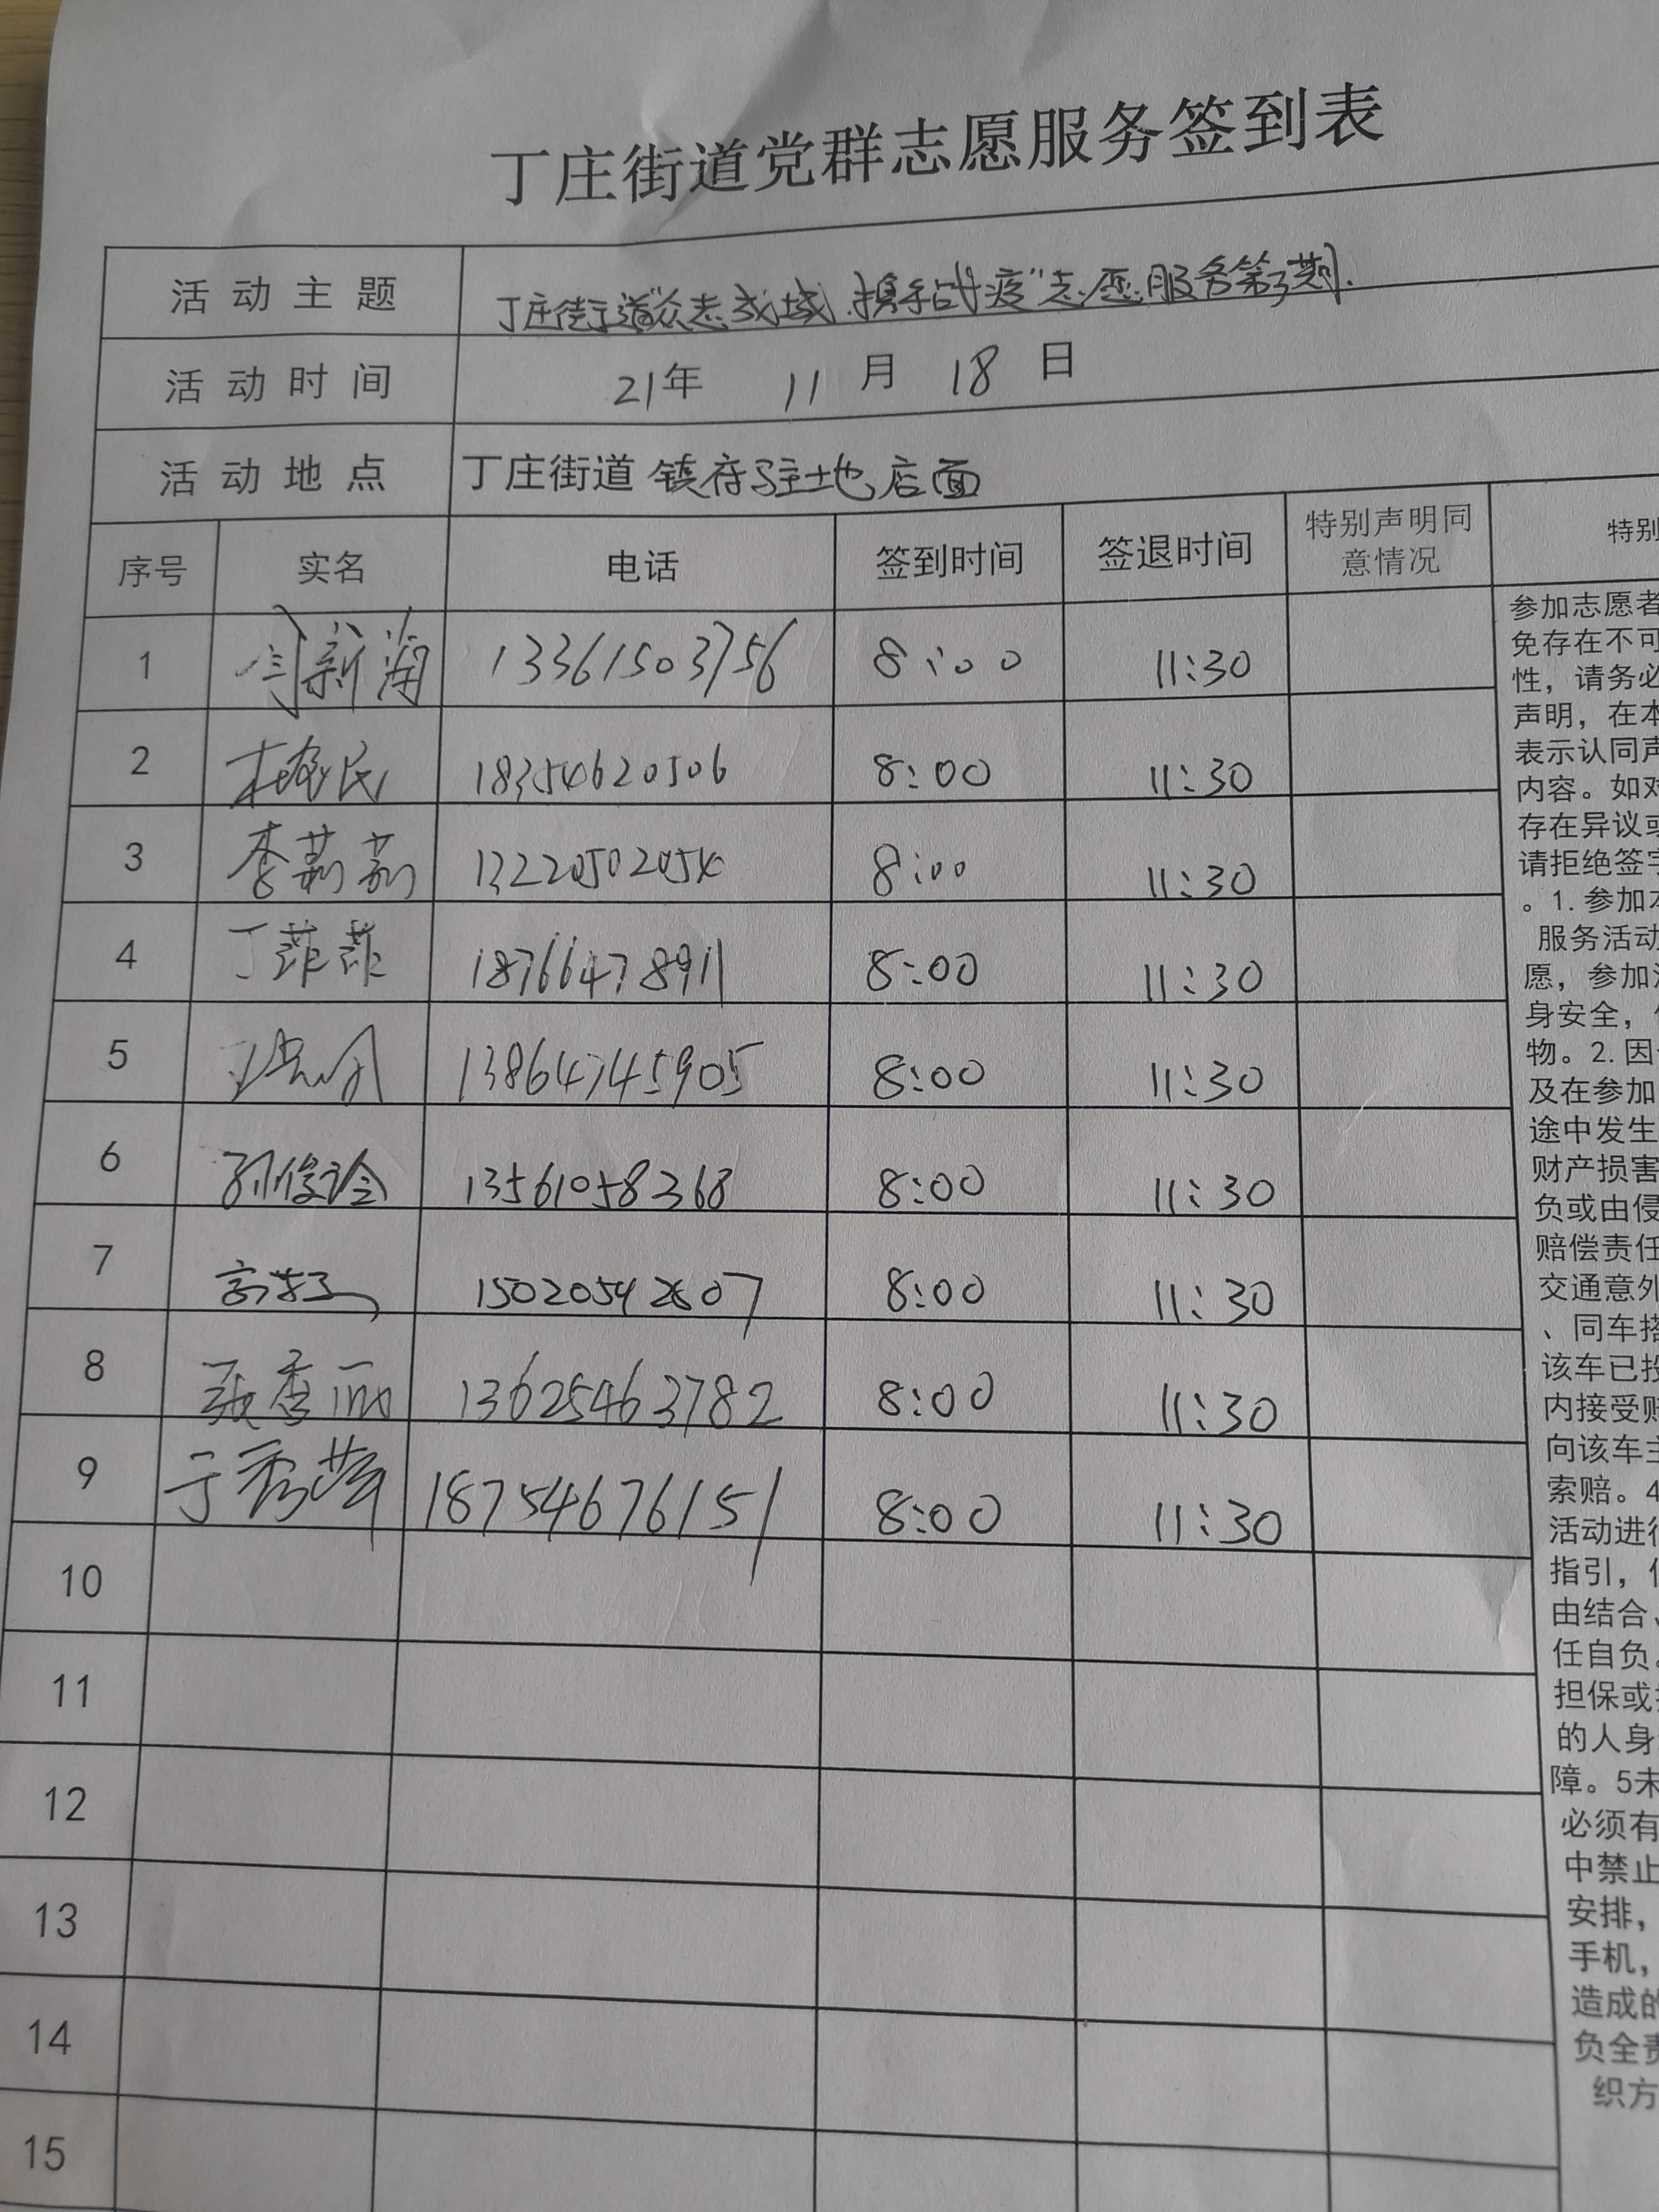 丁庄街道党群志愿服务签到表
活动主题 丁庄街道"众志成城 携手战"疫"志愿服务第3期.
活动时间 21年 11月 18日
活动地点 丁庄街道 镇府驻地店面
序号 实名 电话 签到时间 签退时间 特别声明同意情况 特别
1 13361503756 8:00 11:30
2 18354620506 8:00 11:30
3 李荔荔 8:00 11:30
4 丁菲菲 18766478911 8:00 11:30
5 13864745905 8:00 11:30
6 13561058368 8:00 11:30
7 8:00 11:30
8 张秀丽 13625463782 8:00 11:30
9 于秀萍 18754676151 8:00 11:30
10
11
12
13
14
15
参加志愿者
免存在不可
性，请务必
声明，在本
表示认同声
内容。如对
存在异议或
请拒绝签字
。1.参加本
服务活动
愿，参加活
身安全，
物。2.因
及在参加
途中发生
财产损害
负或由侵
赔偿责任
交通意外
、同车搭
该车已投
内接受赔
向该车主
索赔。4
活动进行
指引，
由结合、
任自负。
担保或
的人身
障。5未
必须有
中禁止
安排，
手机，
造成的
负全责
织方